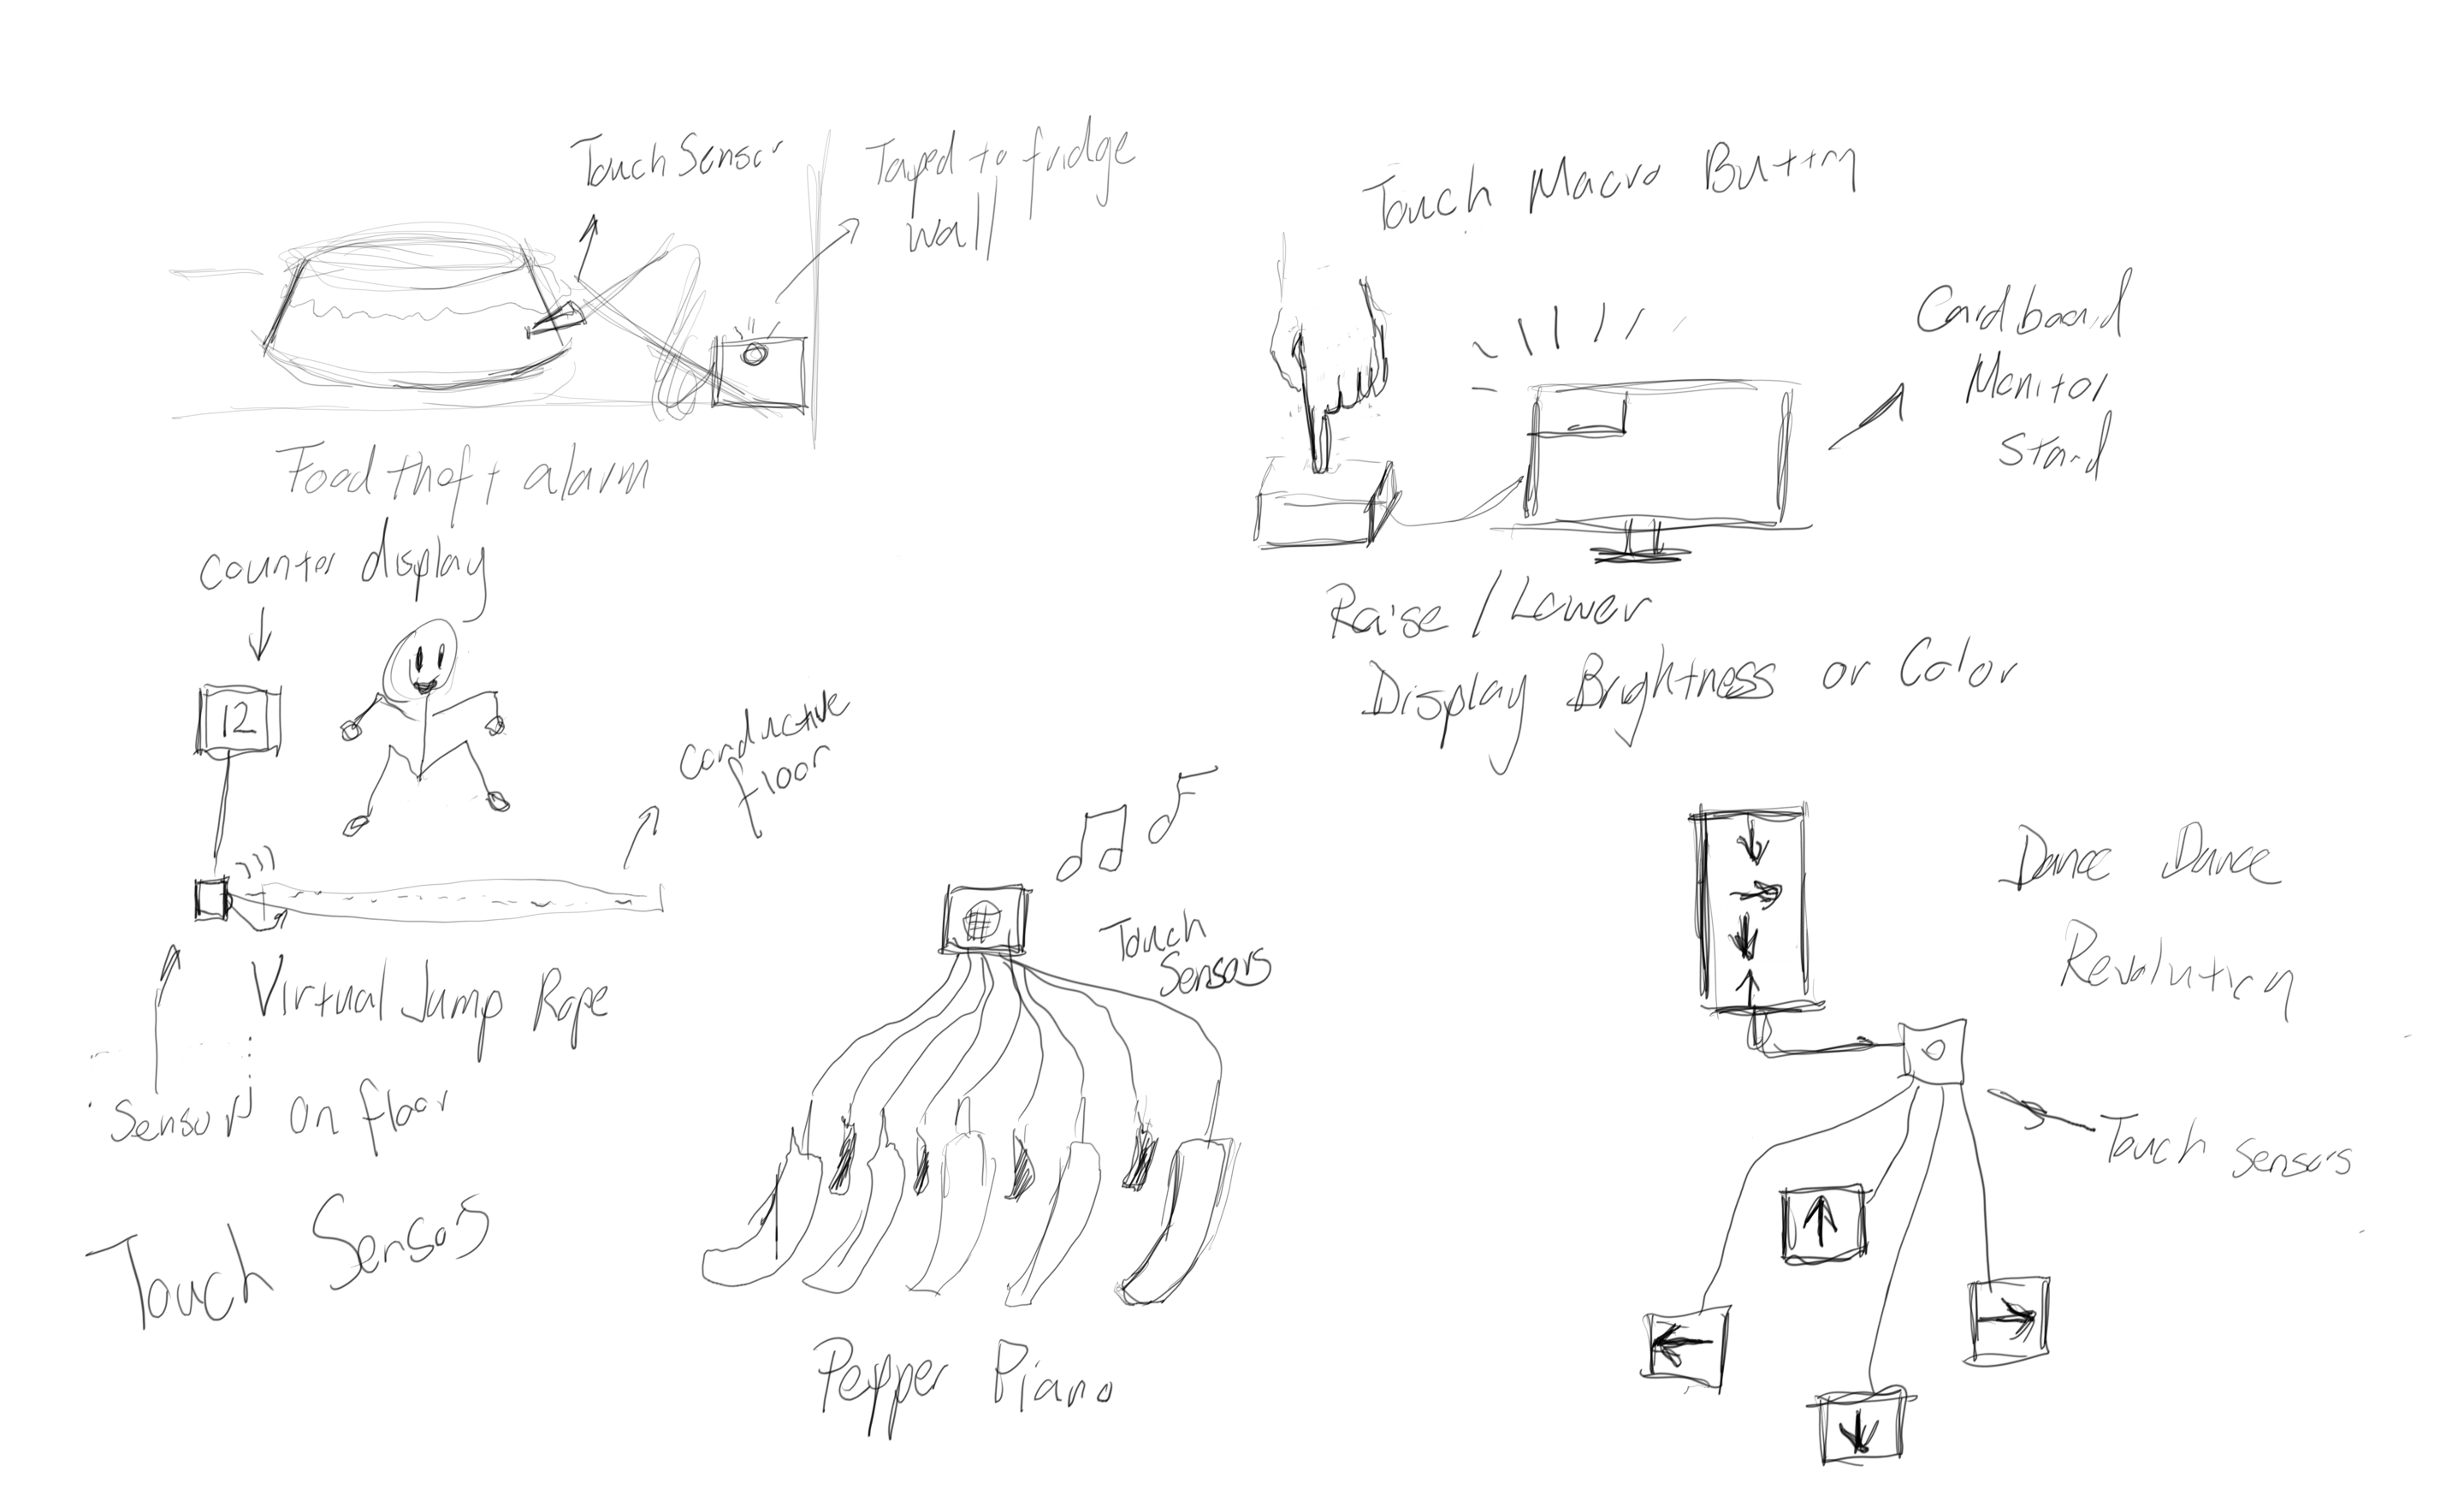 Touch Sensor
Taped to fridge
wall
Food theft alarm
Touch Macro Button
Cardboard
Monitor
Stand
Raise / Lower
Display Brightness or Color
counter display
12
conductive
floor
Virtual Jump Rope
Sensor on floor
Touch Sensors
Touch
Sensors
Pepper Piano
Dance Dance
Revolution
Touch Sensors